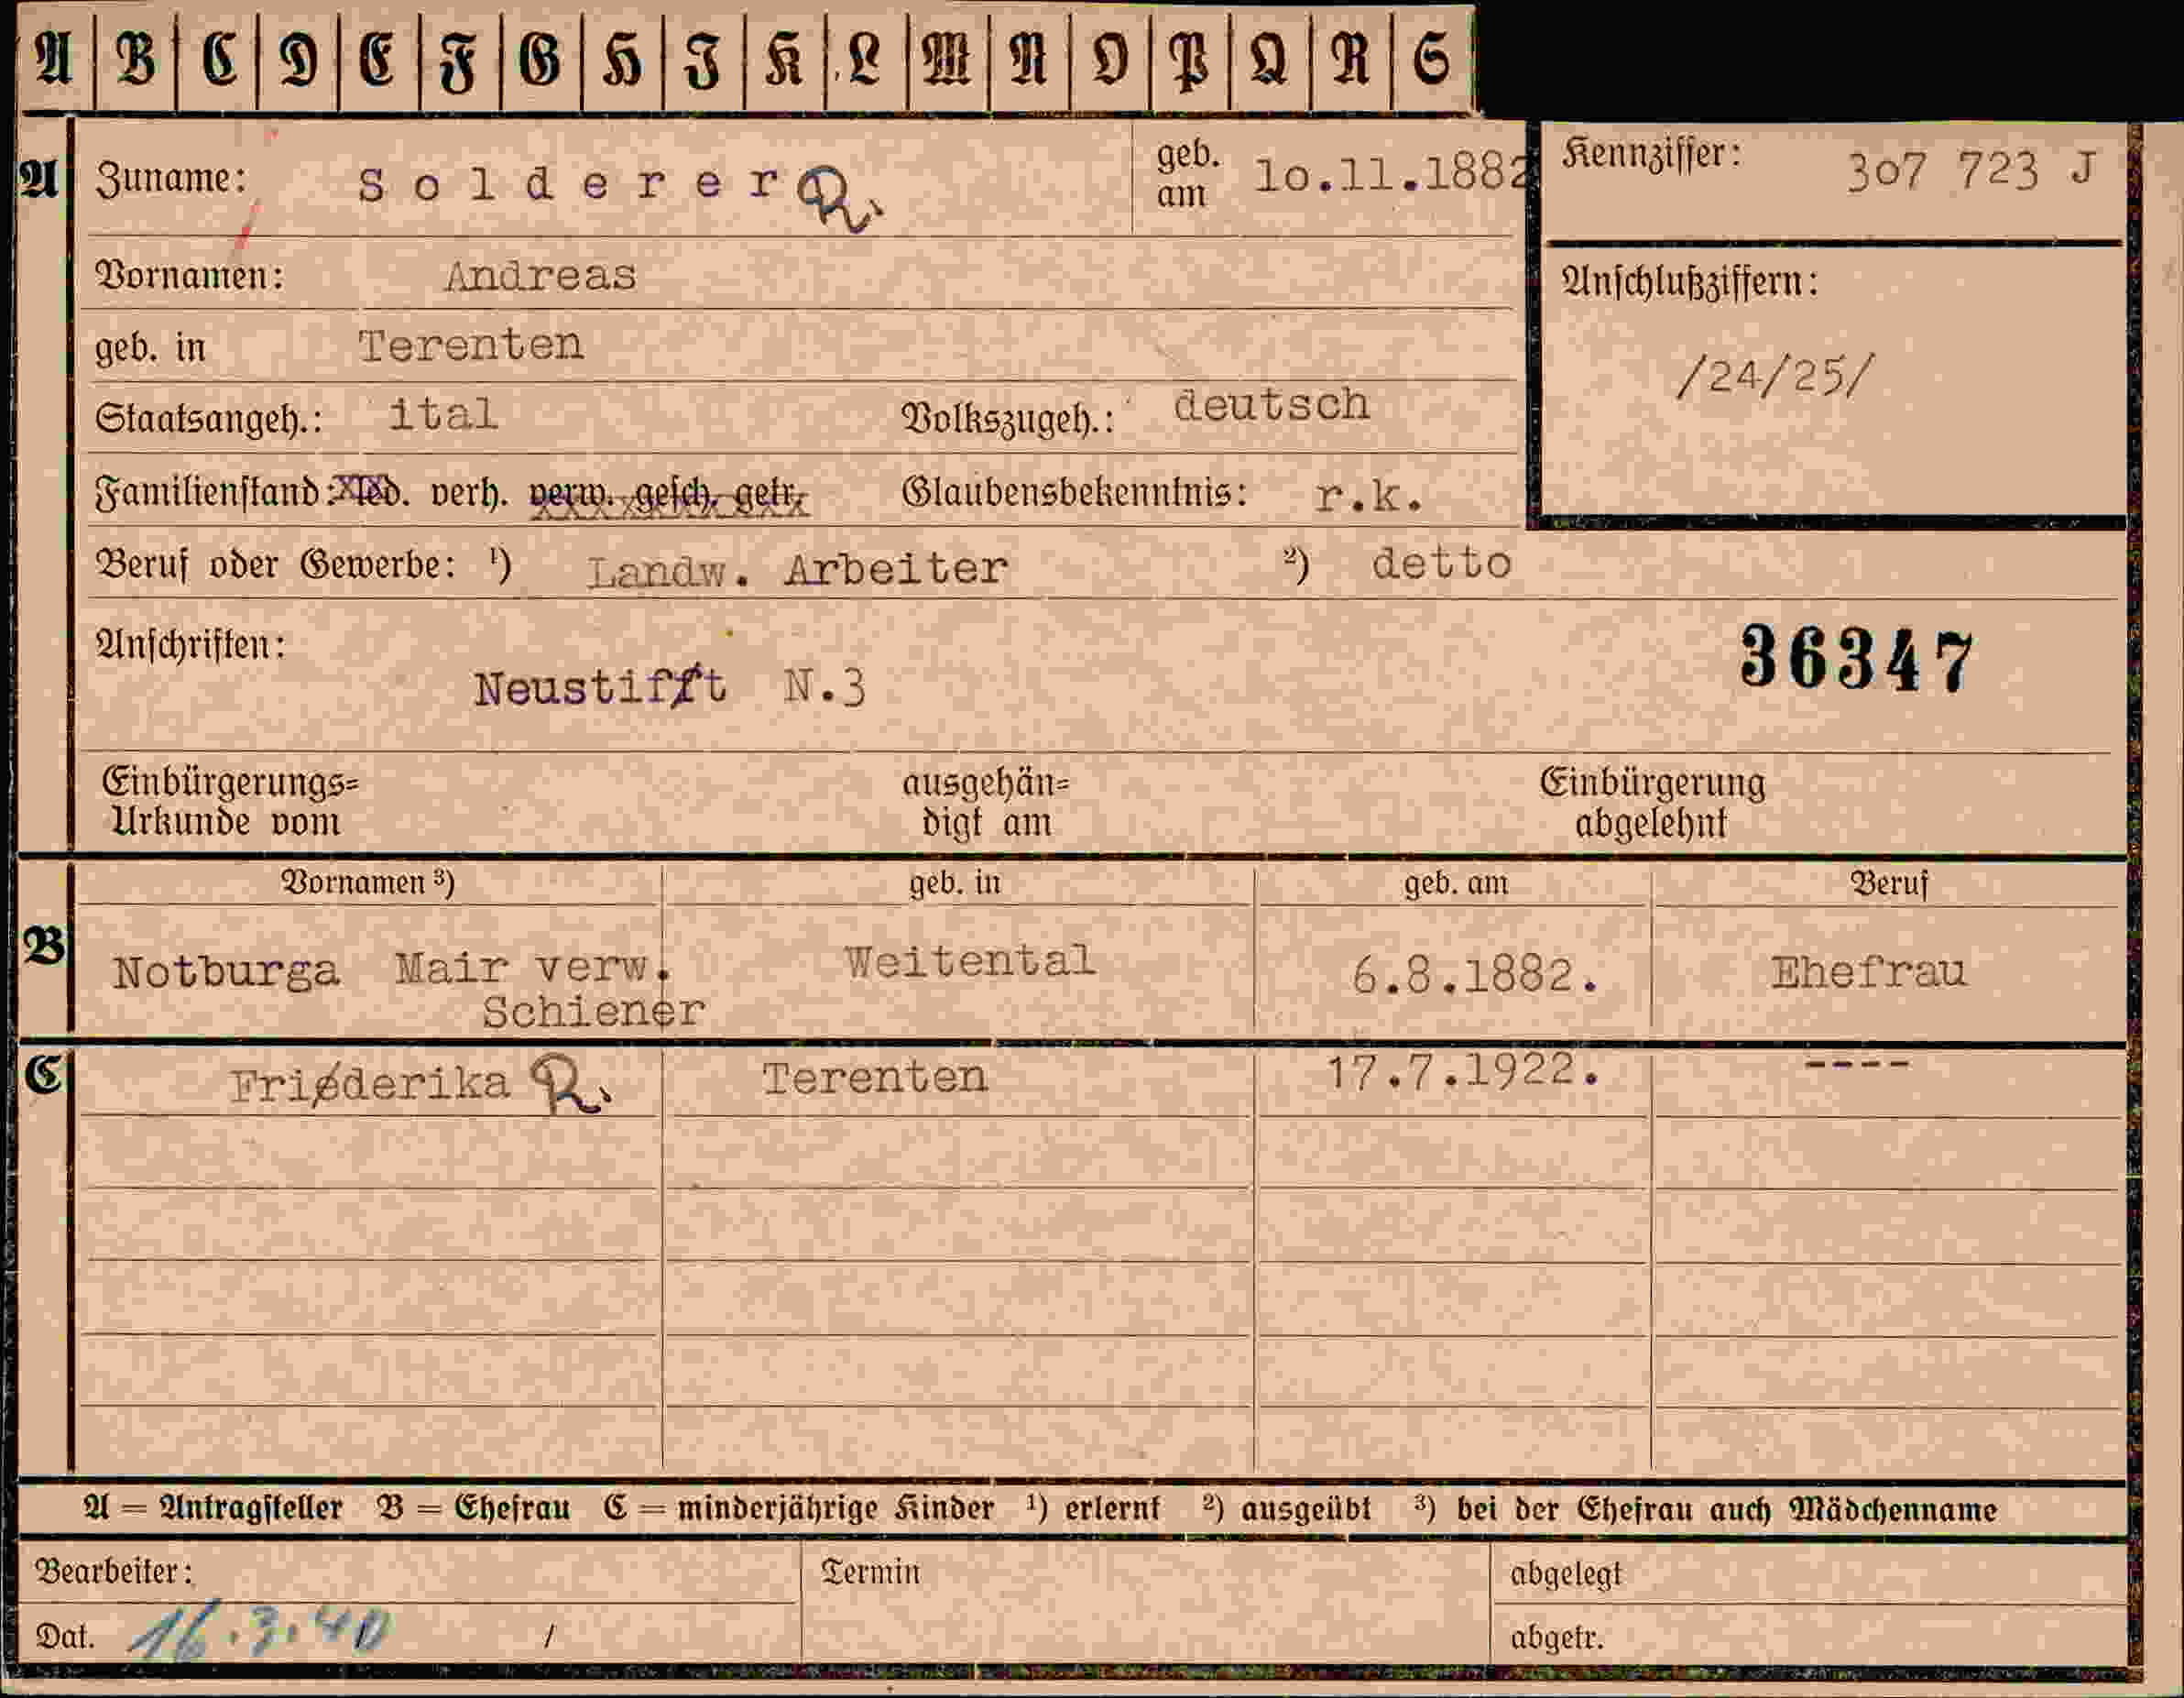 A B C D E F G H I K L M N O P Q R S
A Zuname: Solderer R. geb. am 10.11.1882 Kennziffer: 307 723 J
Vornamen: Andreas Anschlußziffern:
geb. in Terenten /24/25/
Staatsangeh.: ital Volkszugeh.: deutsch
Familienstand: led. verh. verw. gesch. getr. Glaubensbekenntnis: r.k.
Beruf oder Gewerbe: ¹) Landw. Arbeiter ²) detto
Anschriften: 36347
Neustift N.3
Einbürgerungs= ausgehän= Einbürgerung
Urkunde vom digt am abgelehnt
Vornamen ³) geb. in geb. am Beruf
B Notburga Mair verw. Weitental 6.8.1882. Ehefrau
Schiener
C Friederika R. Terenten 17.7.1922. ----
A = Antragsteller B = Ehefrau C = minderjährige Kinder ¹) erlernt ²) ausgeübt ³) bei der Ehefrau auch Mädchenname
Bearbeiter: Termin abgelegt
Dat. 16.3.40 / abgetr.